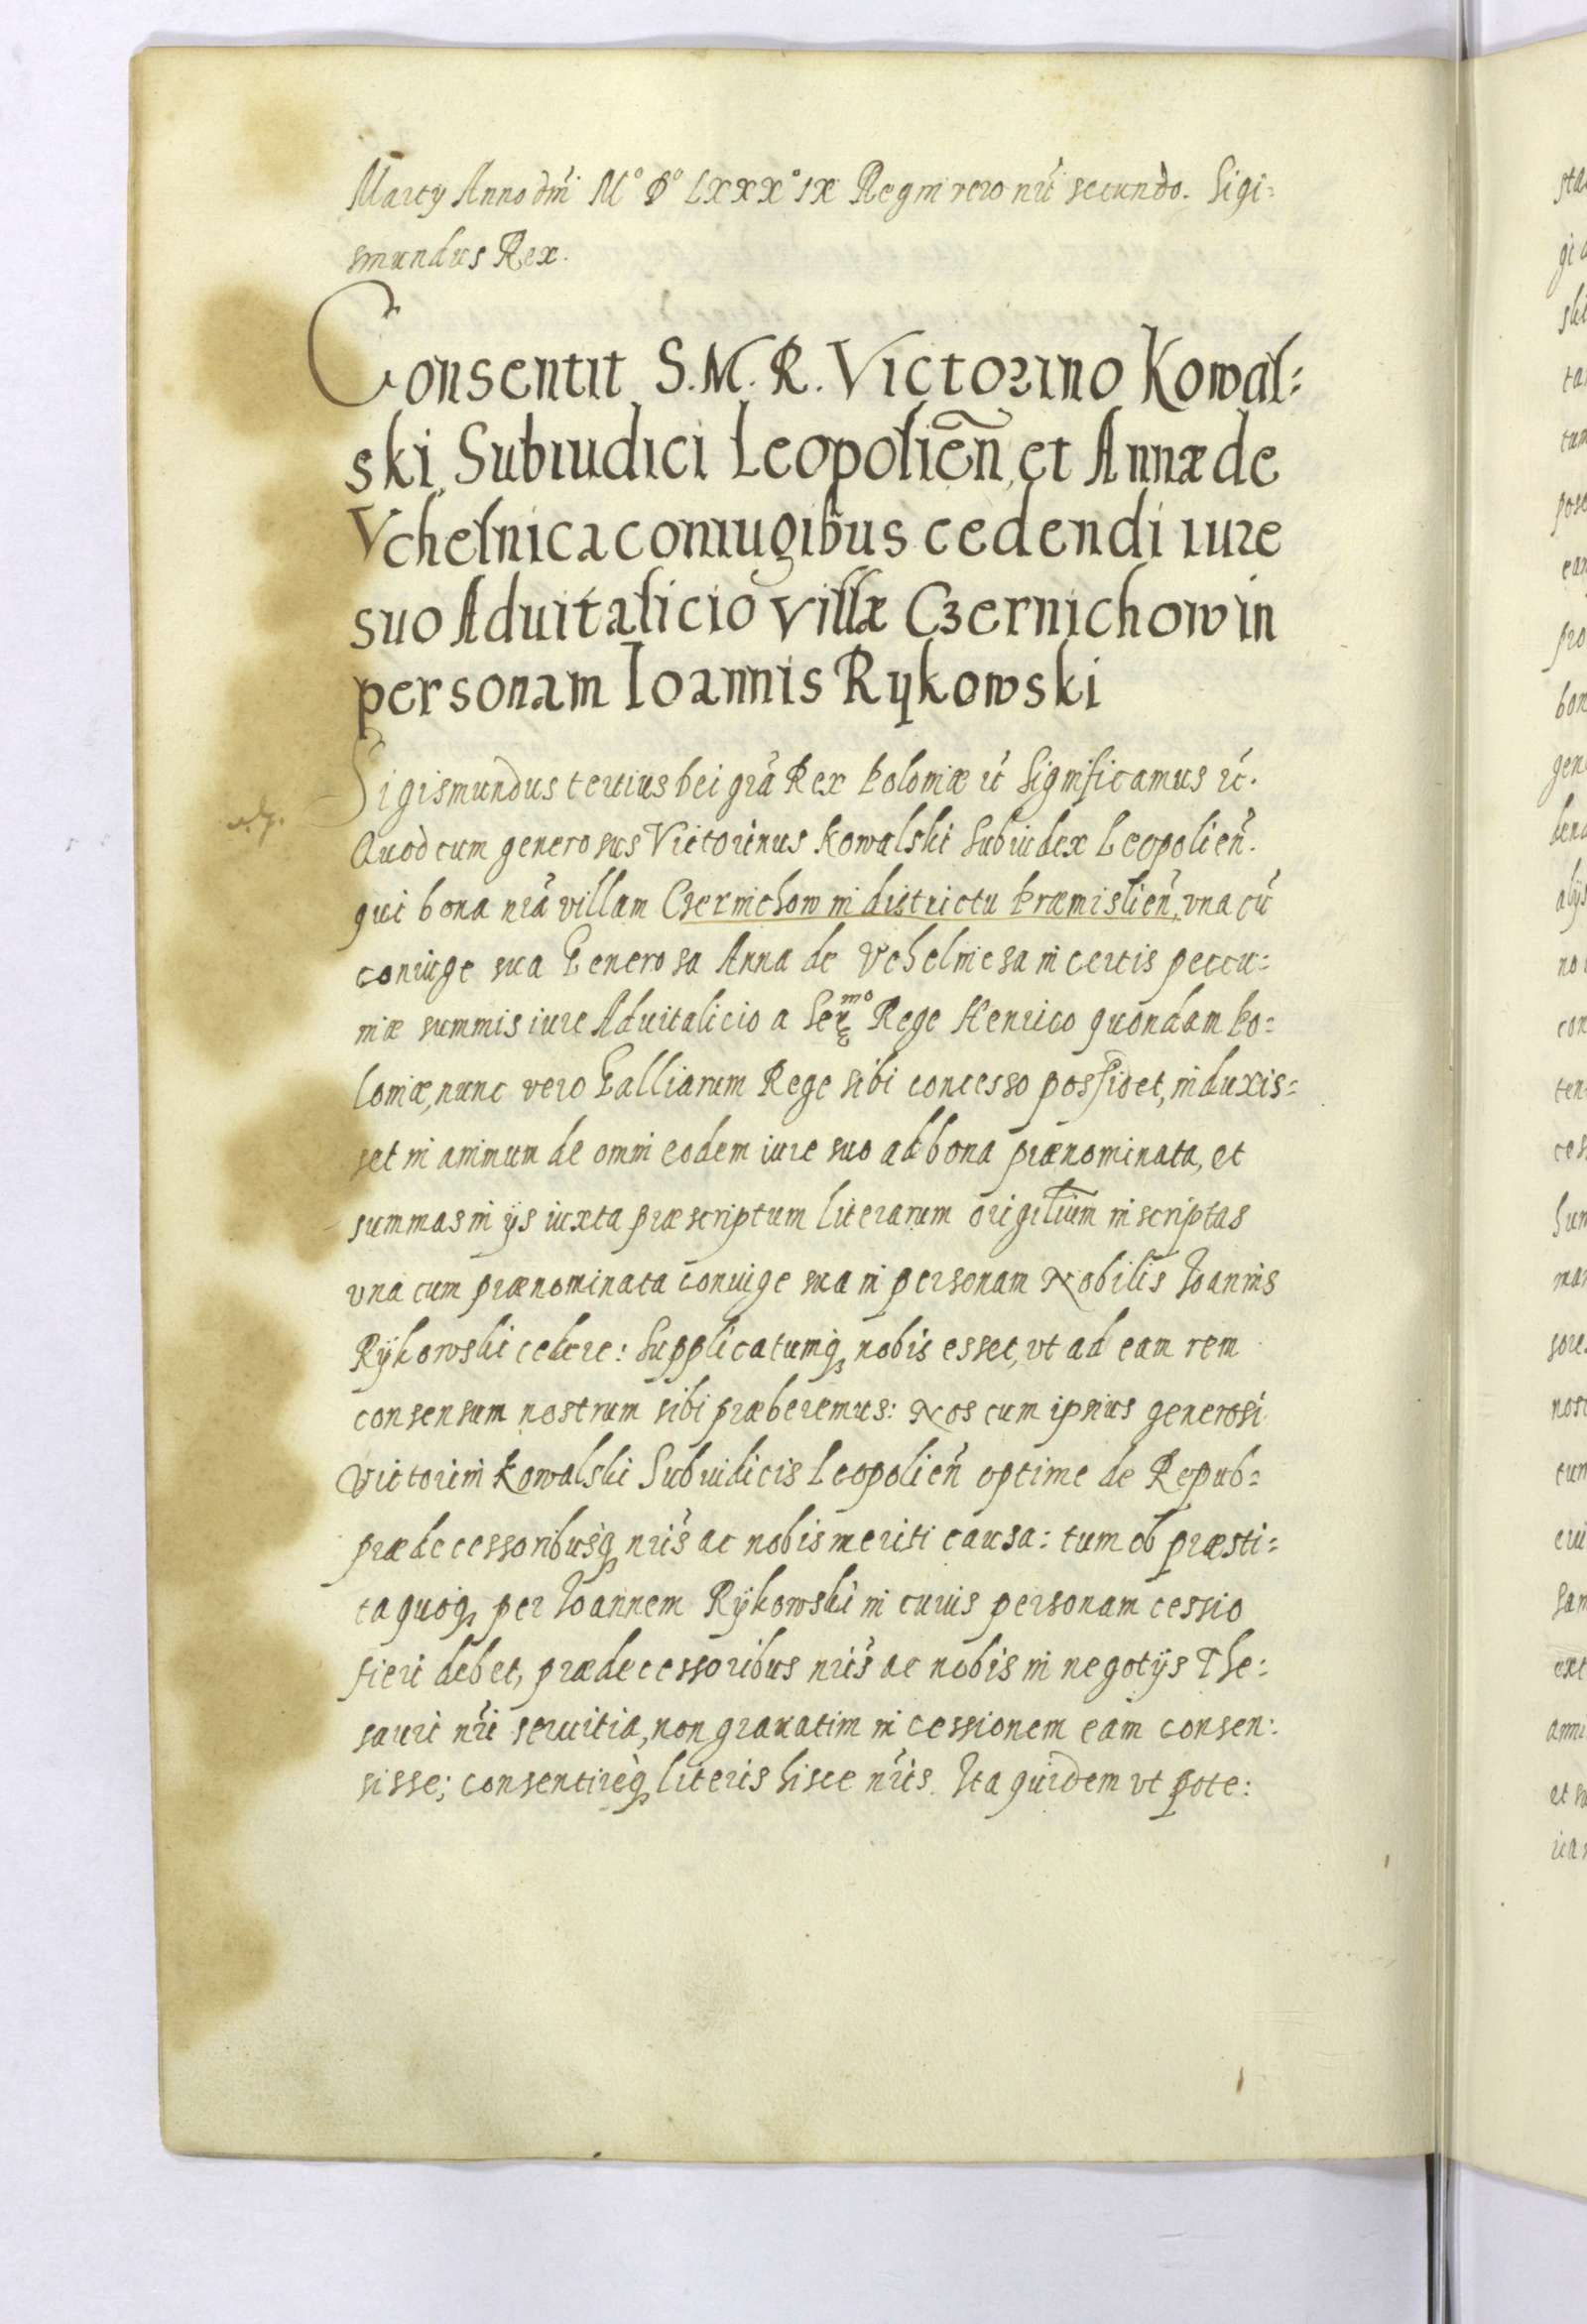 Martÿ Anno dñi M° D° LXXX° IX Regni vero nr̃i secundo. Sigi=
smundus Rex.
Consentit S.M.R. Victorino Kowal=
ski Subiudici Leopolien̄, et Annæ de
Vchelnica coniugibus cedendi iure
suo Aduitalicio villæ Czernichow in
personam Ioannis Rykowski
Sigismundus tertius Dei grã Rex Poloniæ &c̃ Significamus &c̃.
Quod cum generosus Victorinus Kowalski Subiudex Leopolien̄.
qui bona nr̃a villam Czernichow in districtu Præmislien̄, vna cũ
coniuge sua Generosa Anna de Vchelnicsa in certis peccu=
niæ summis iure Aduitalicio a Ser.mo Rege Henrico quondam Po=
loniæ, nunc vero Galliarum Rege sibi concesso possidet, induxis=
set in animum de omni eodem iure suo ad bona prænominata, et
summas in ÿs iuxta præscriptum literarum origĩlium inscriptas
vna cum prænominata coniuge sua in personam Nobilis Ioannis
Rÿkowski cedere: Supplicatumq̧ nobis esset, vt ad eam rem
consensum nostrum sibi præberemus: Nos cum ipsius generosi
Victorini Kowalski Subiudicis Leopolien̄ optime de Repub=
prædecessoribusq̧ nr̃is ac nobis meriti causa: tum ob præsti=
ta quoq̧ per Ioannem Rÿkowski in cuius personam cessio
fieri debet, prædecessoribus nr̃is ac nobis in negotÿs The=
sauri nr̃i seruitia, non grauatim in cessionem eam consen=
sisse; consentireq̧ literis hisce nr̃is. Ita quidem vt pote: